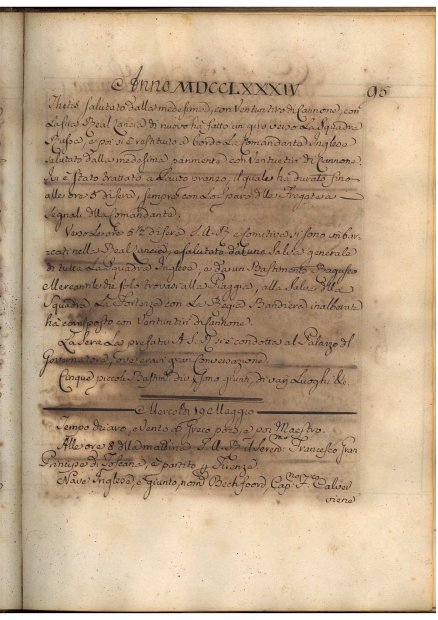 Anno MDCCLXXXIV 95
Thetis salutato dalla medesima, con Ventun tiro di Cannone, con
La sua Real Lancia di nuovo hà fatto un giro verso La Squadra
Russa, e poi si è restituito a bordo La Comandante Inglese
salutato dalla medesima parimente con Ventun tiri di Cannone.
Ivi è stato trattato a Lauto pranzo, il quale hà durato fino
alle ore 5 di sera, sempre con Lo sparo delle Fregate a
segnali della Comandante.
Verso Le ore 5½ di sera S. A. R. e comitiva si sono imbar-
cati nella Real Lancia, e salutato da una salva generale
di tutta La Squadra Inglese, e da un Bastimento Raguseo
Mercantile che solo trovasi alla Piaggia, alla salva della
Squadra La Fortezza con La Regia Bandiera inalborata
hà composto con Ventun tiri di Cannone.
La Sera La prefata A. S. R. si è condotta al Palazzo del
Governatore, ove eravi gran Conversazione.
Cinque piccoli Bastim.ti che sono giunti, di varj Luoghi &c.
Mercoldì 19 Maggio
Tempo chiaro, e vento di Greco poco, e poi Maestro.
Alle ore 8 della mattina S. A. R. il Seren.mo Francesco Gran
Principe di Toscana, è partito p. Firenze.
Nave Inglese, è Giunto, nom.ta Beckfoord Cap.no
viene